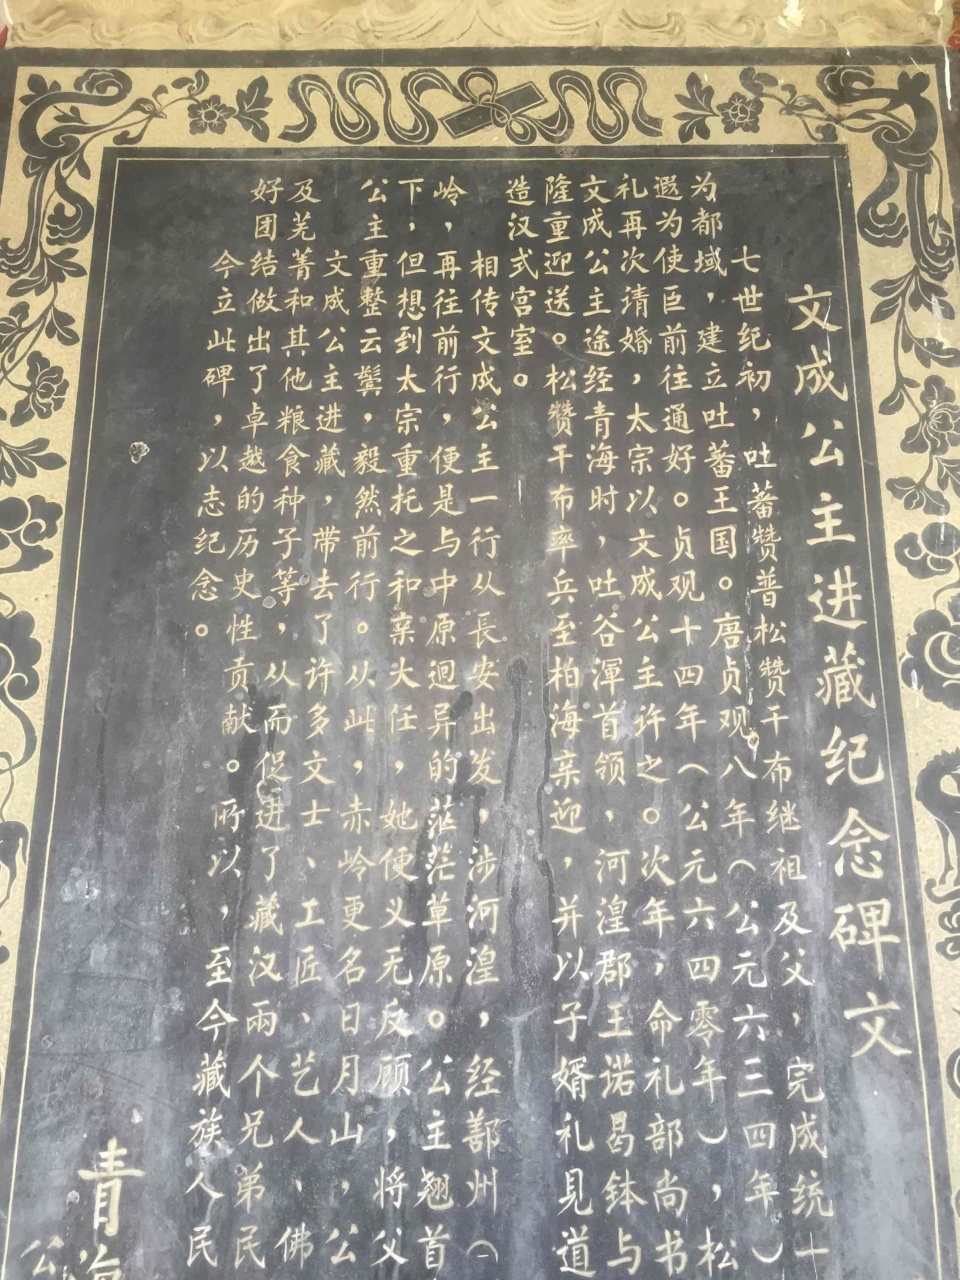 文成公主进藏纪念碑文
七世纪初，吐蕃赞普松赞干布继祖及父，完成统一
为都域，建立吐蕃王国。唐贞观八年（公元六三四年）
遐为使臣前往通好。贞观十四年（公元六四零年），松
礼再次请婚，太宗以文成公主许之。次年，命礼部尚书
文成公主途经青海时，吐谷渾首领，河湟郡王诺曷钵与
隆重迎送。松赞干布率兵至柏海亲迎，并以子婿礼见道
造汉式宫室。
相传文成公主一行从長安出发，涉河湟，经鄯州（
岭，再往前行，便是与中原迥异的茫茫草原。公主翘首
下，但想到太宗重托之和亲大任，她便义无反顾，将父
公主重整云鬓，毅然前行。从此，赤岭更名日月山，公
文成公主进藏，带去了许多文士、工匠、艺人、佛
及芜菁和其他粮食种子等，从而促进了藏汉兩个兄弟民
好团结做出了卓越的历史性贡献。所以，至今藏族人民
今立此碑，以志纪念。
青海
公